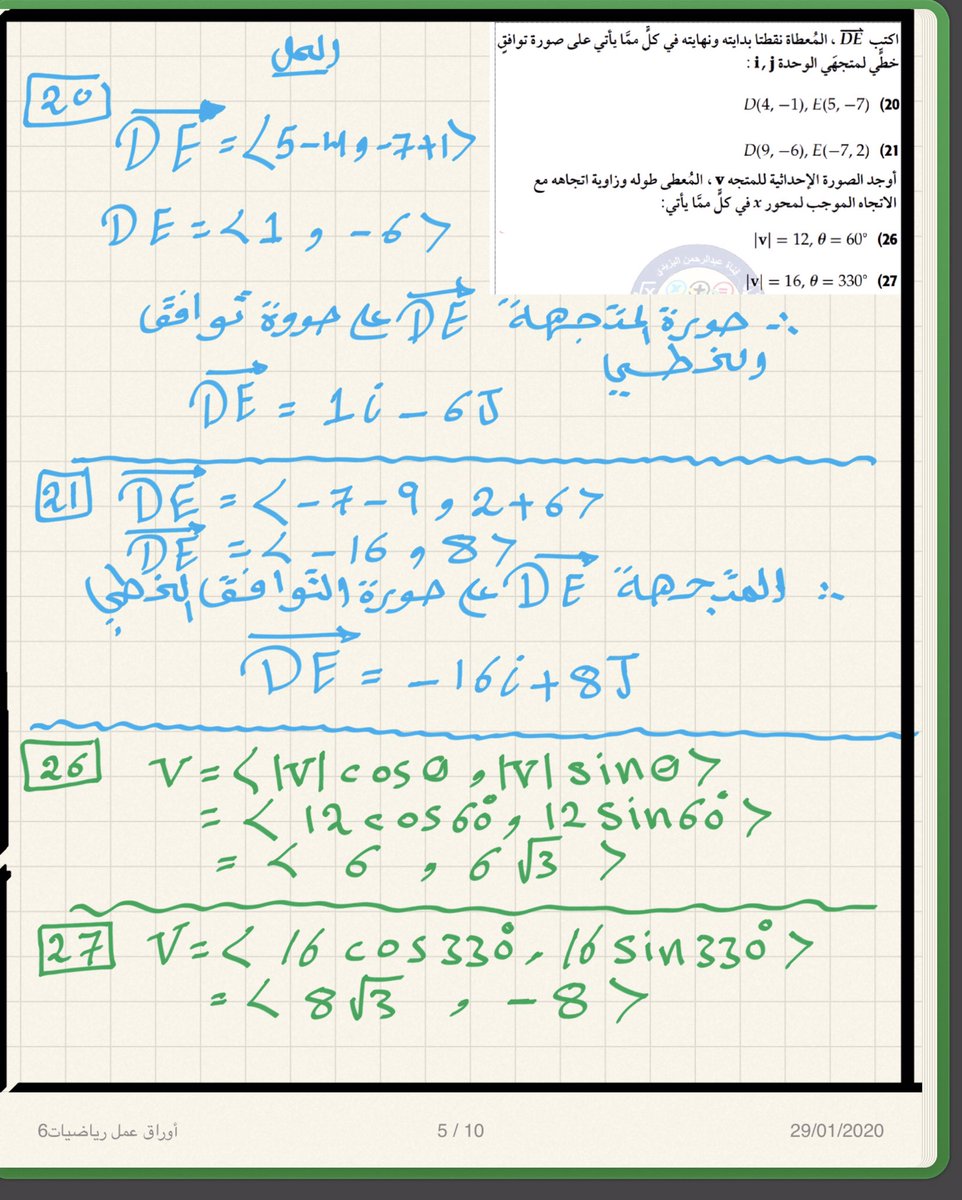 اكتب DE ، المُعطاة نقطتا بدايته ونهايته في كلٍّ ممَّا يأتي على صورة توافقٍ
خطِّي لمتجهَي الوحدة i , j :
20) D(4, −1), E(5, −7)
21) D(9, −6), E(−7, 2)
أوجد الصورة الإحداثية للمتجه v ، المُعطى طوله وزاوية اتجاهه مع
الاتجاه الموجب لمحور x في كلٍّ ممَّا يأتي:
26) |v| = 12, θ = 60°
27) |v| = 16, θ = 330°
الحل
20
DE = <5-4, -7+1>
DE = <1, -6>
∴ صورة المتجهة DE على صورة توافق
والخطي
DE = 1i - 6J
21 DE = <-7-9, 2+6>
DE = <-16, 8>
∴ المتجهة DE على صورة التوافق الخطي
DE = -16i+8J
26 V = <|V| cosθ, |V| sinθ>
= <12cos60°, 12 sin60°>
= <6, 6√3>
27 V = <16 cos330°, 16 sin330°>
= <8√3, -8>
أوراق عمل رياضيات6
5 / 10
29/01/2020